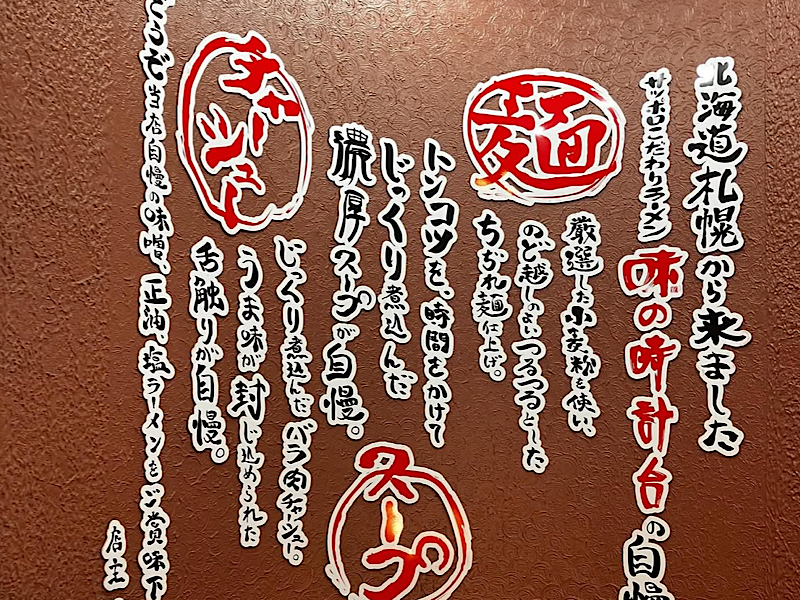 北海道札幌から来ました
サッポロこだわりラーメン
味の時計台の自慢
麺
厳選した小麦粉を使い、
のど越しのよいつるつるとした
ちぢれ麺仕上げ。
トンコツを、時間をかけて
じっくり煮込んだ
濃厚スープが自慢。
スープ
チャーシュー
じっくり煮込んだバラ肉チャーシューに。
うま味が封じ込められた
舌触りが自慢。
どうぞ当店自慢の味噌、正油、塩ラーメンをご賞味下
店主